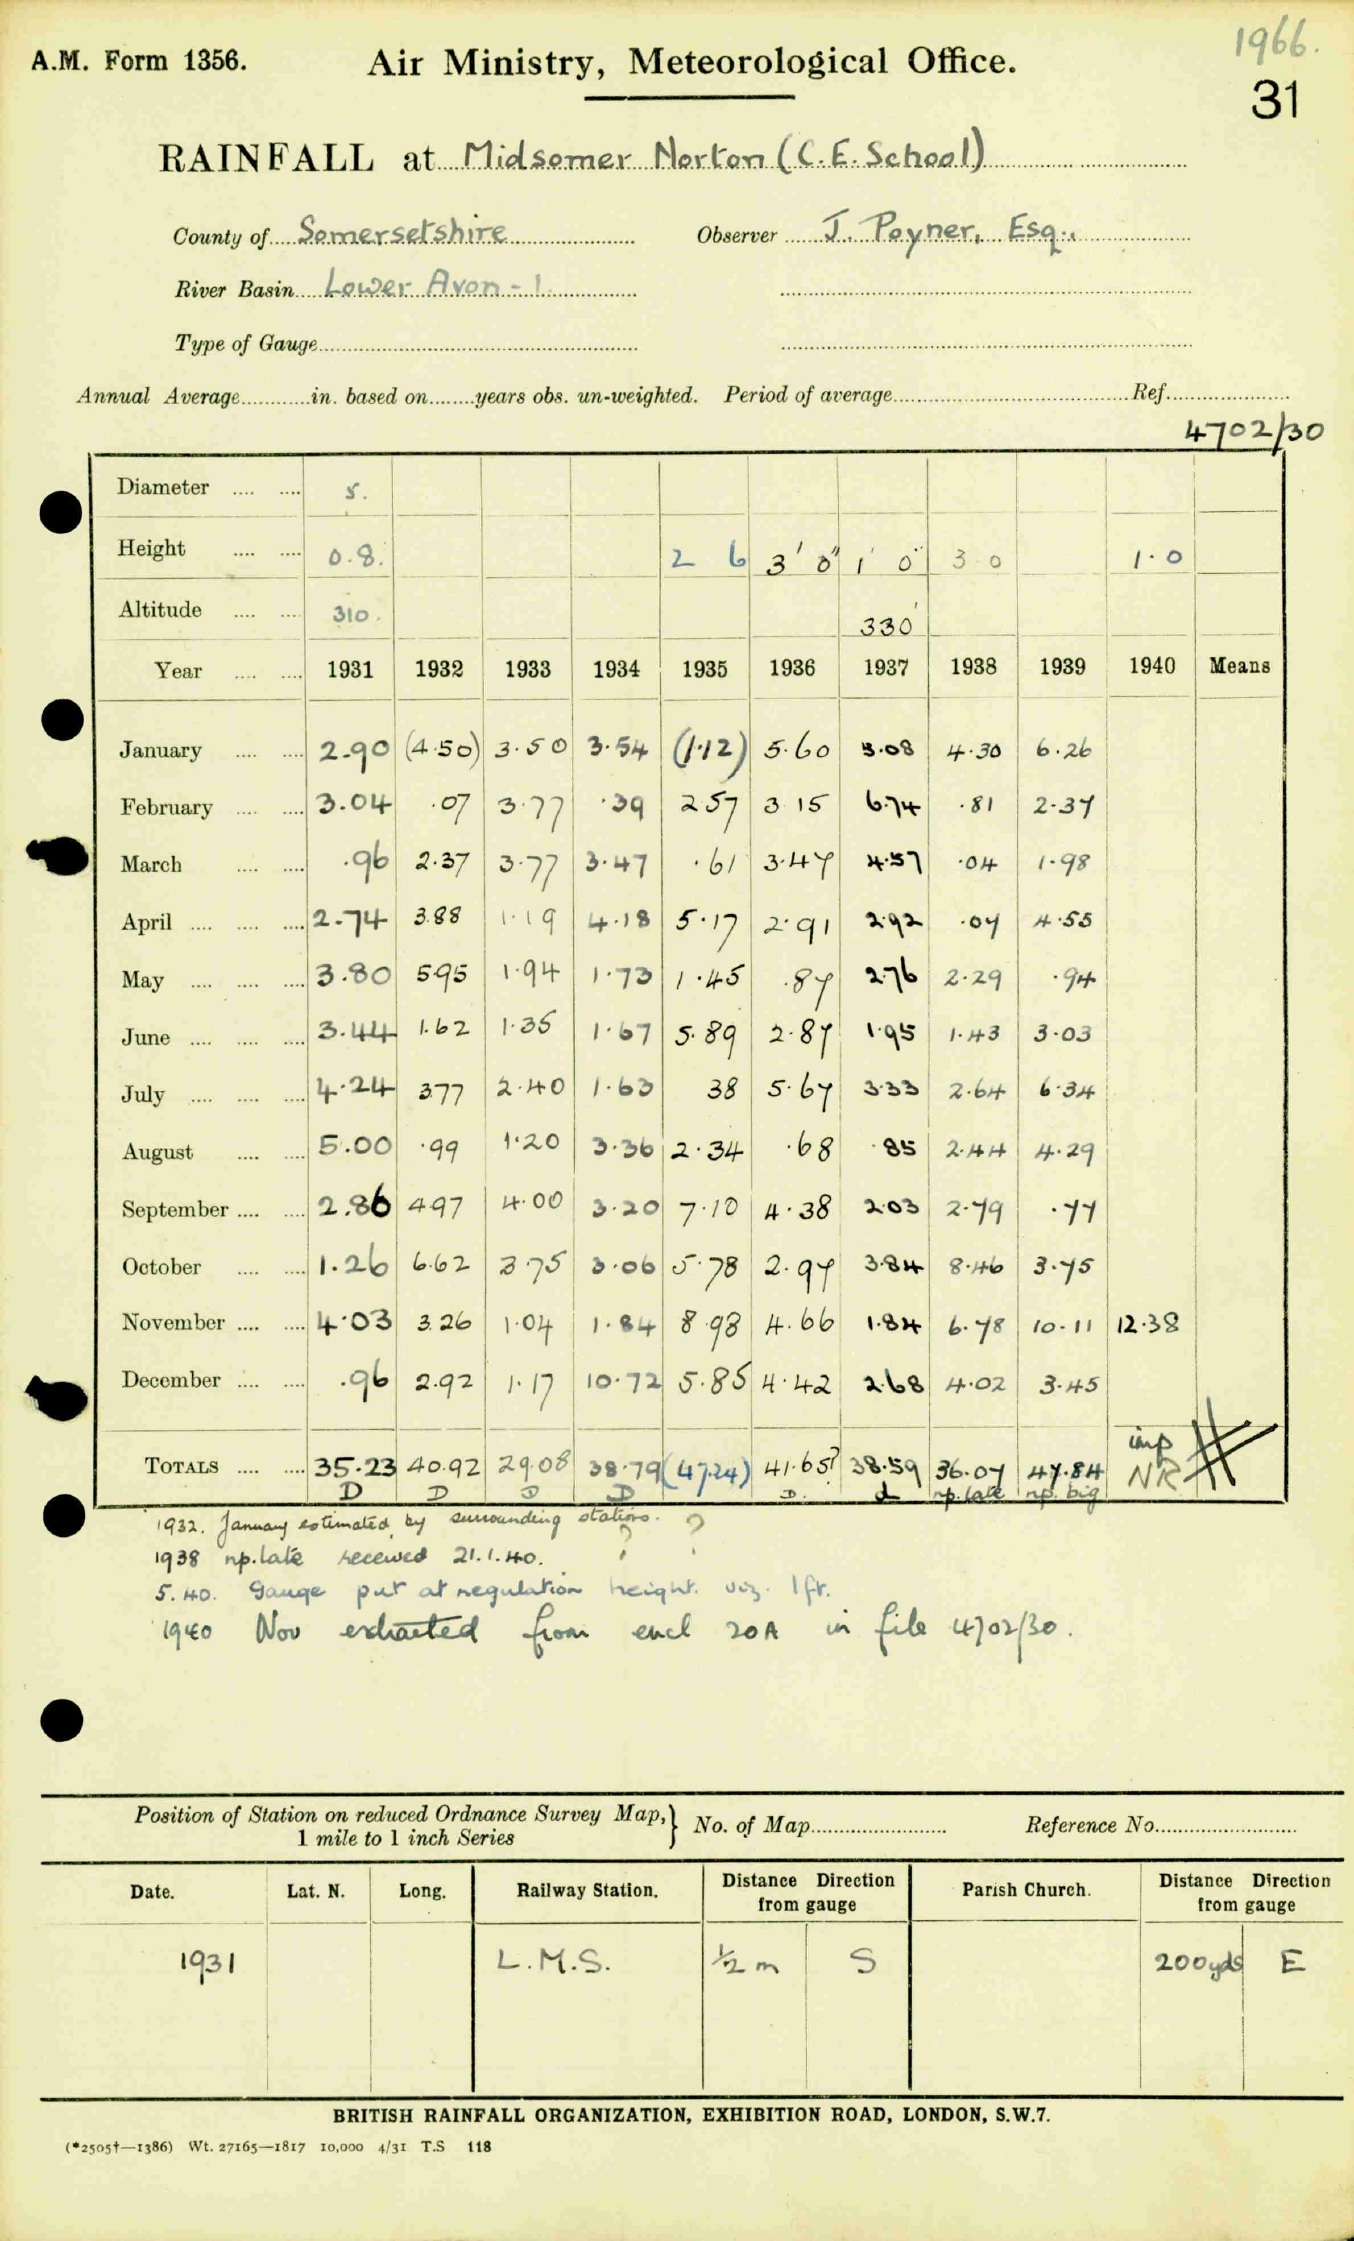 1966.
A.M. Form 1356. Air Ministry, Meteorological Office.
31
RAINFALL at Midsomer Norton (C.E. School)
County of Somersetshire Observer J. Poyner, Esq.,
River Basin Lower Avon - 1
Type of Gauge
Annual Average in. based on years obs. un-weighted. Period of average Ref.
4702/30
Diameter 5.
Height 0.8. 2 6 3' 0" 1' 0" 3 0 1.0
Altitude 310. 330'
Year 1931 1932 1933 1934 1935 1936 1937 1938 1939 1940 Means
January 2.90 (4.50) 3.50 3.54 (1.12) 5.60 5.08 4.30 6.26
February 3.04 .07 3.77 .39 2.57 3.15 6.74 .81 2.37
March .96 2.37 3.77 3.47 .61 3.47 4.57 .04 1.98
April 2.74 3.88 1.19 4.18 5.17 2.91 2.92 .07 4.55
May 3.80 5.95 1.94 1.73 1.45 .87 2.76 2.29 .94
June 3.44 1.62 1.35 1.67 5.89 2.87 1.95 1.43 3.03
July 4.24 3.77 2.40 1.63 38 5.67 3.33 2.64 6.34
August 5.00 .99 1.20 3.36 2.34 .68 .85 2.44 4.29
September 2.86 4.97 4.00 3.20 7.10 4.38 2.03 2.79 .77
October 1.26 6.62 3.75 3.06 5.78 2.97 3.84 8.46 3.75
November 4.03 3.26 1.04 1.84 8.98 4.66 1.84 6.78 10.11 12.38
December .96 2.92 1.17 10.72 5.85 4.42 2.68 4.02 3.45
TOTALS 35.23 40.92 29.08 38.79 (47.24) 41.65? 38.59 36.07 47.84 imp NR
D D D D D. d np. late np. big
1932. January estimated by surrounding stations. ? ?
1938 np. late received 21.1.40.
5.40. Gauge put at regulation height. viz. 1 ft.
1940 Nov extracted from encl 20A in file 4702/30.
Position of Station on reduced Ordnance Survey Map, } No. of Map Reference No.
1 mile to 1 inch Series
Date. Lat. N. Long. Railway Station. Distance Direction from gauge Parish Church. Distance Direction from gauge
1931 L.M.S. ½ m S 200 yds E
BRITISH RAINFALL ORGANIZATION, EXHIBITION ROAD, LONDON, S.W.7.
(*2505†—1386) Wt. 27165—1817 10,000 4/31 T.S 118